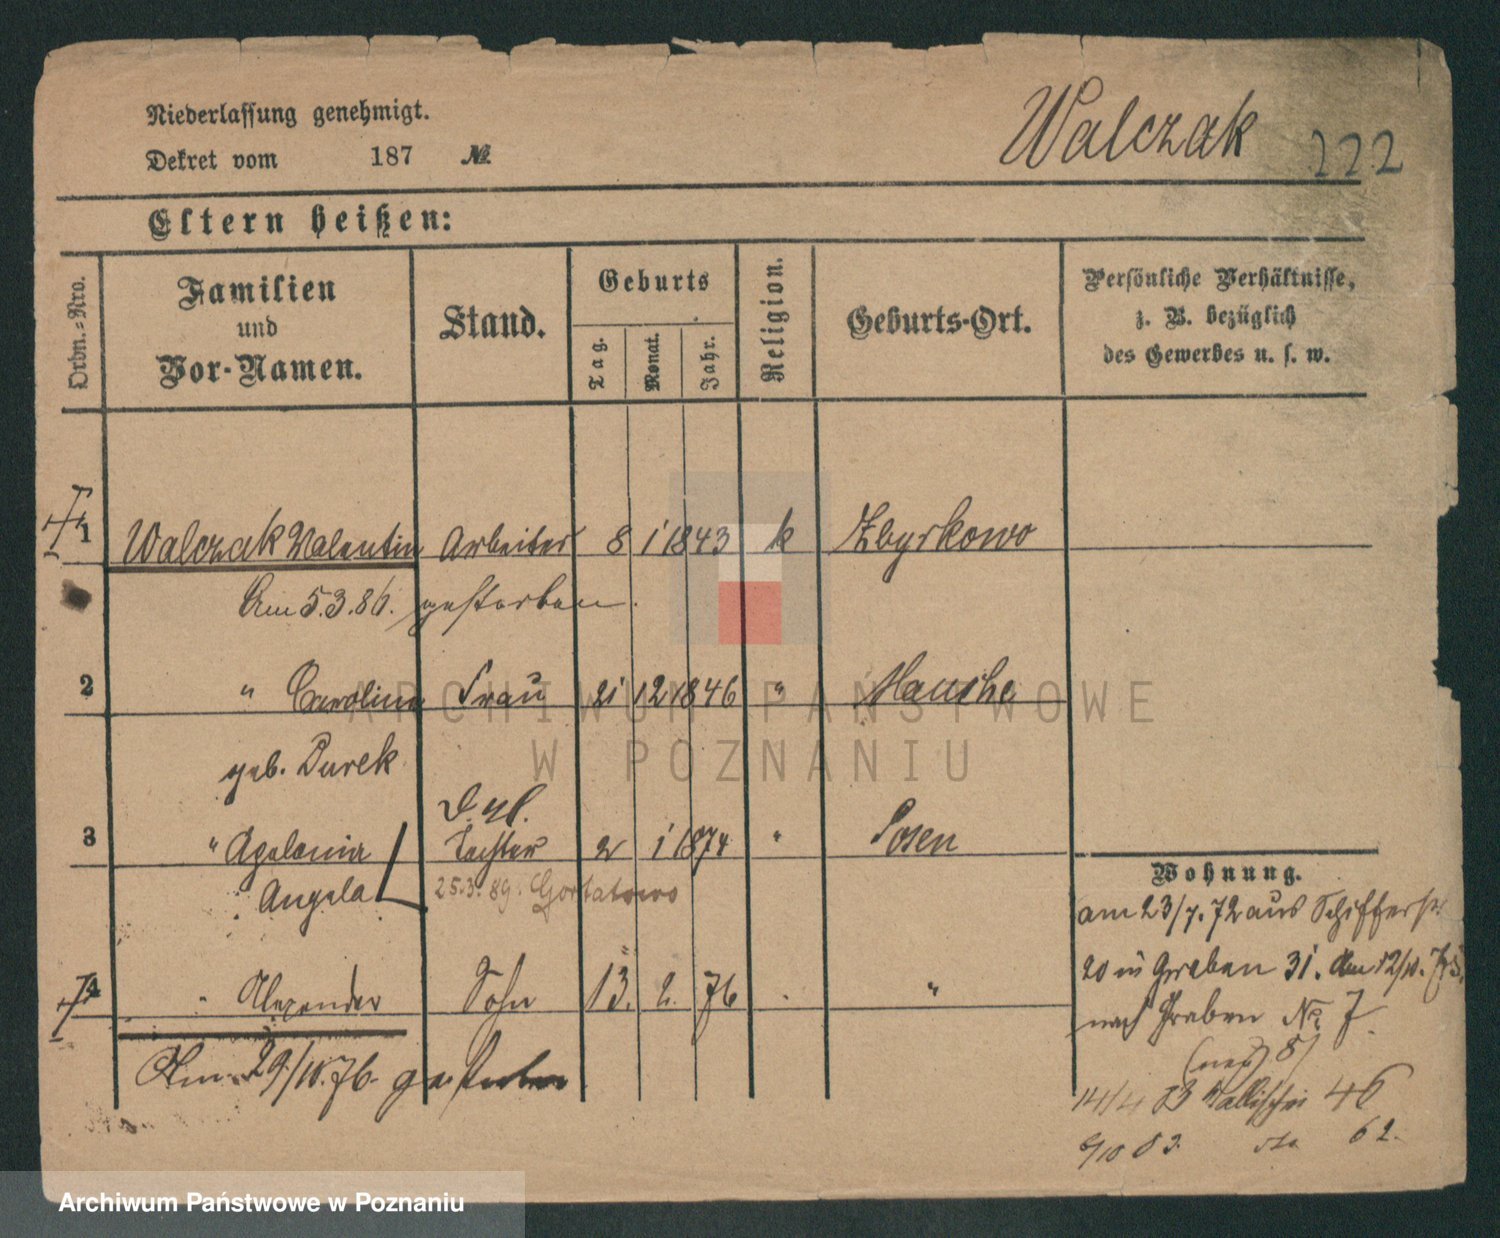 Niederlassung genehmigt.
Dekret vom 187 №
Walczak 222
Eltern heißen:
Ordn.-Nro.
Familien
und
Vor-Namen.
Stand.
Geburts
Tag.
Monat.
Jahr.
Religion.
Geburts-Ort.
Persönliche Verhältnisse,
z. B. bezüglich
des Gewerbes u. s. w.
1 Walczak Valentin Arbeiter 8 1 1843 k Zbyrkowo
Am 5.3.86. gestorben.
2 " Carolina Frau 21 12 1846 "
geb. Durek
3 " Apolonia Tochter 2 1 1874 " Posen
Angela 25.3.89. Gortatowo
4 " Alexander Sohn 13. 2. 76 "
Am 29/10.76. gestorben
Wohnung.
am 23/7.72 aus Schifferstr
20 in Graben 31. Am 12/10.
nach Graben No. 7.
(neu) 8)
14/4 83 Wallischei 46
9/10 83. 62.
ARCHIWUM PAŃSTWOWE
W POZNANIU
Archiwum Państwowe w Poznaniu